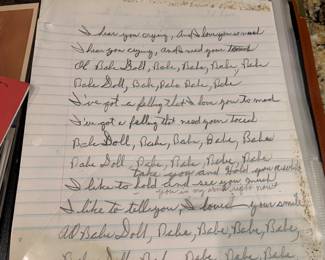 I hear you crying, And I love you so much
I hear you crying, and need your touch
Ol Babe Doll, Babe, Babe, Babe, Babe
Babe Doll, Babe, Babe Babe, Babe
I've got a felling that I love you to much
I've got a felling that need your touch
Babe Doll, Babe, Babe, Babe, Babe
Babe Doll, Babe, Babe, Babe, Babe
take you and hold you
I like to hold and see your smile
you in my right now
I like to tell you, I love your smile
Babe Doll, Babe, Babe, Babe, Babe,
Babe Doll, Babe, Babe, Babe, Babe